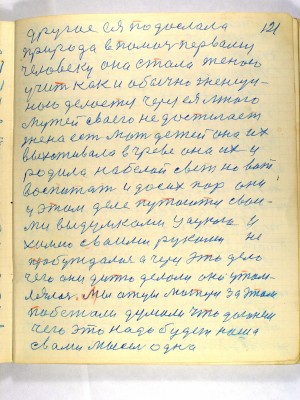 121
другое ея подослала
природа в помоч первому
человеку она стала женою
учит как и обычно женщи-
ною делоется через ея много
мужей своего не достигает
жена ест мат детей она их
вынхоживала в чреве она их и
родила на белой свет но вот
воспитат и до сих пор они
у этом деле путоются свои-
ми выдумками наукою и
химию своими руками не
пробуждалоя а через это дело
чего они дитю делоли она утом-
лялася. Мы отцы матери за этим
побежали думали что должен
чего это надо будет наша
с вами мысел одна